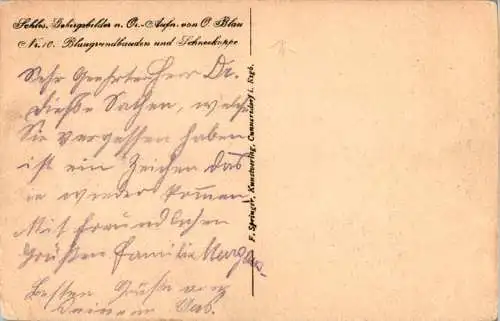 Schles. Gebirgsbilder n. Or.-Aufn. von O. Blau
Nr. 10. Blaugrundbauden und Schneekoppe
Sehr Geehrter Herr Dr.
dieße Sachen, welche
Sie vergessen haben
ist ein Zeichen das
sie wieder kommen
Mit freundlichen
Grüßen Familie
Besten Grüße
F. Springer, Kunstverlag, Cunnersdorf i. Rsgb.